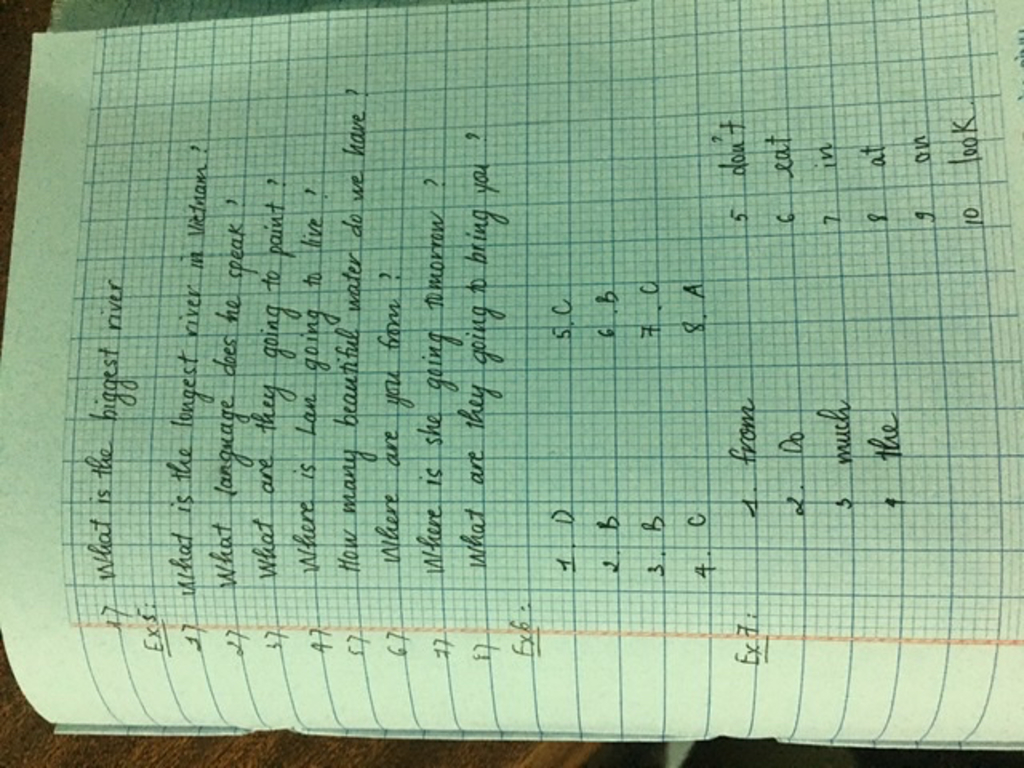 1) What is the biggest river
Ex5:
1) What is the longest river in Vietnam?
2) What language does he speak?
3) What are they going to paint?
4) Where is Lan going to live?
5) How many beautiful water do we have?
6) Where are you from?
7) Where is she going tomorrow?
8) What are they going to bring you?
Ex6:
1. D 5. C
2. B 6. B
3. B 7. C
4. C 8. A
Ex7:
1. from 5 don't
2. Do 6 eat
3 much 7 in
4 the 8 at
9 on
10 look.